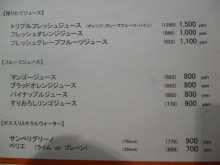 【搾りたてジュース】
トリプルフレッシュジュース (オレンジ・グレープフルーツ・パイン) 1,500 yen
フレッシュオレンジジュース 1,000 yen
フレッシュグレープフルーツジュース 1,100 yen
【フルーツジュース】
マンゴージュース (693) 800 yen
ブラッドオレンジジュース (693) 800 yen
パイナップルジュース (693) 800 yen
すりおろしリンゴジュース 900 yen
【ガス入りミネラルウォーター】
サンペリグリーノ (779) 900 yen
ペリエ (ライム or プレーン) 700 yen